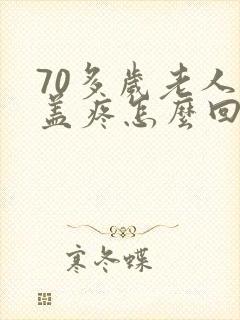 70多歲老人
蓋疼怎麼回
寒冬蝶